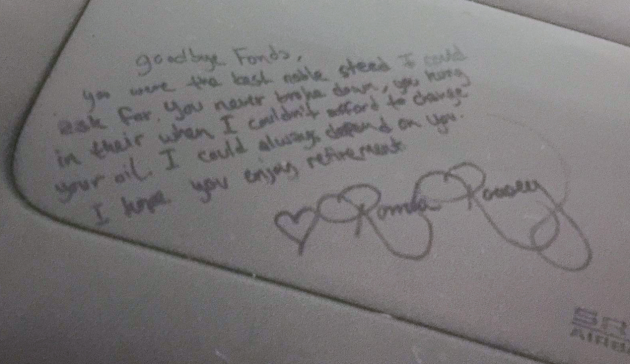 Goodbye Fonda,
you were the best noble steed I could
ask for. You never broke down, you hung
in their when I couldn't afford to change
your oil. I could always depend on you.
I hope you enjoy retirement
♡ Ronda Rousey
SRS
AIRBAG